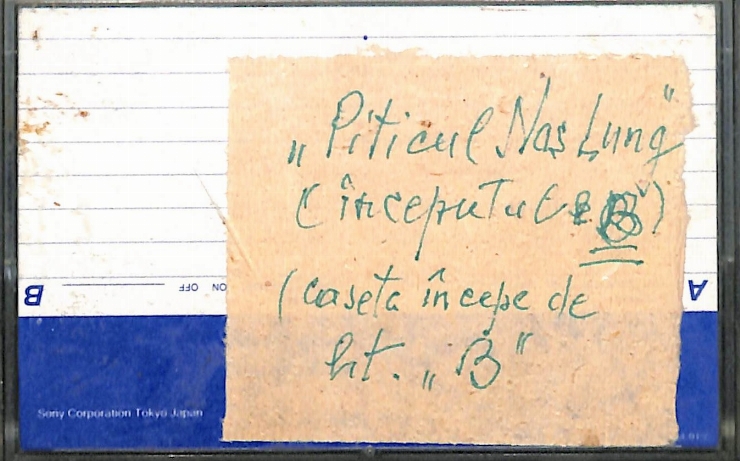 „Piticul Nas Lung"
(începutul e B)
(caseta începe de
lit. „B"
B
ON OFF
A
Sony Corporation Tokyo Japan